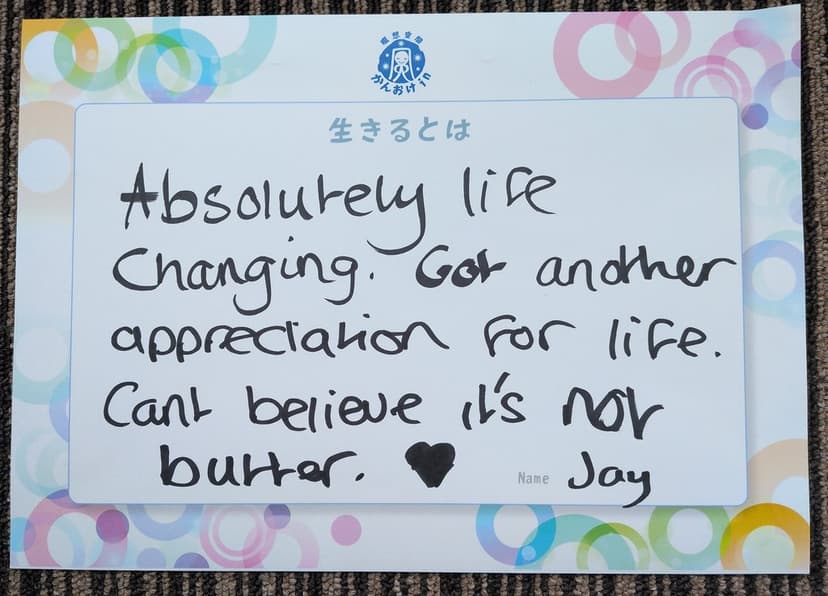 瞑想空間
かんおけin
生きるとは
Absolutely life
Changing. Got another
appreciation for life.
Cant believe it's not
butter. ♥
Name Jay